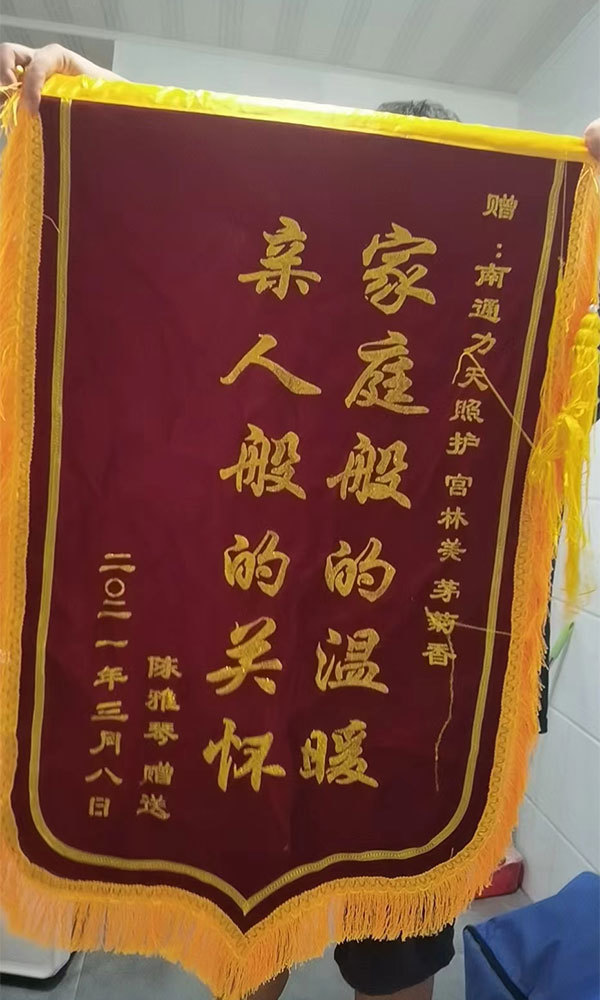 赠：南通力天照护 宫林美 茅菊香
家庭般的温暖
亲人般的关怀
陈雅琴 赠送
二〇二一年三月八日